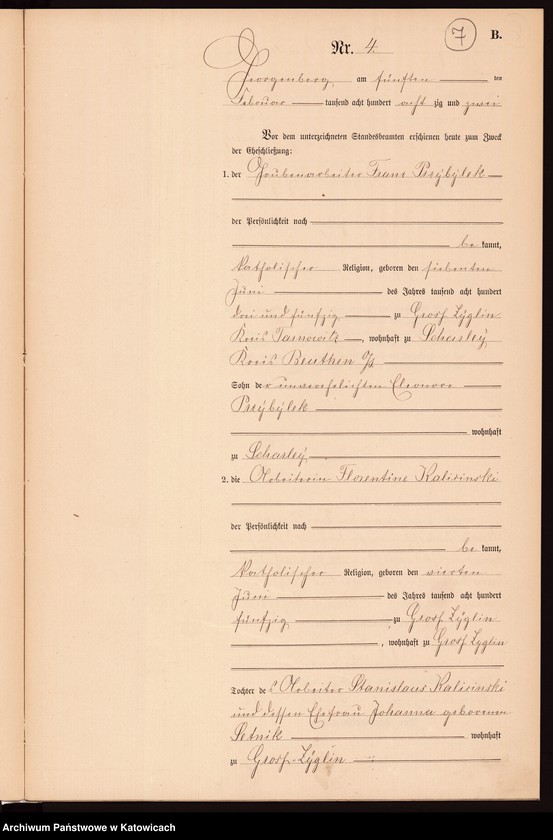 7 B.
Nr. 4.
Georgenberg, am fünften ten
Februar tausend acht hundert acht zig und zwei
Vor dem unterzeichneten Standesbeamten erschienen heute zum Zweck
der Eheschließung:
1. der Grubenarbeiter Franz Przÿbÿlek
der Persönlichkeit nach
be kannt,
katholischer Religion, geboren den siebenten
Juni des Jahres tausend acht hundert
drei und fünfzig zu Groß Zÿglin
Kreis Tarnowitz, wohnhaft zu Scharleÿ
Kreis Beuthen O/S
Sohn der unverehelichten Eleonore
Przÿbÿlek
wohnhaft
zu Scharleÿ
2. die Arbeiterin Florentine Kalisinski
der Persönlichkeit nach
be kannt,
katholischer Religion, geboren den vierten
Juni des Jahres tausend acht hundert
fünfzig zu Groß Zÿglin
, wohnhaft zu Groß Zyglin
Tochter des Arbeiter Stanislaus Kalisinski
und dessen Ehefrau Johanna geborenen
Setnik wohnhaft
zu Groß-Zÿglin
Archiwum Państwowe w Katowicach